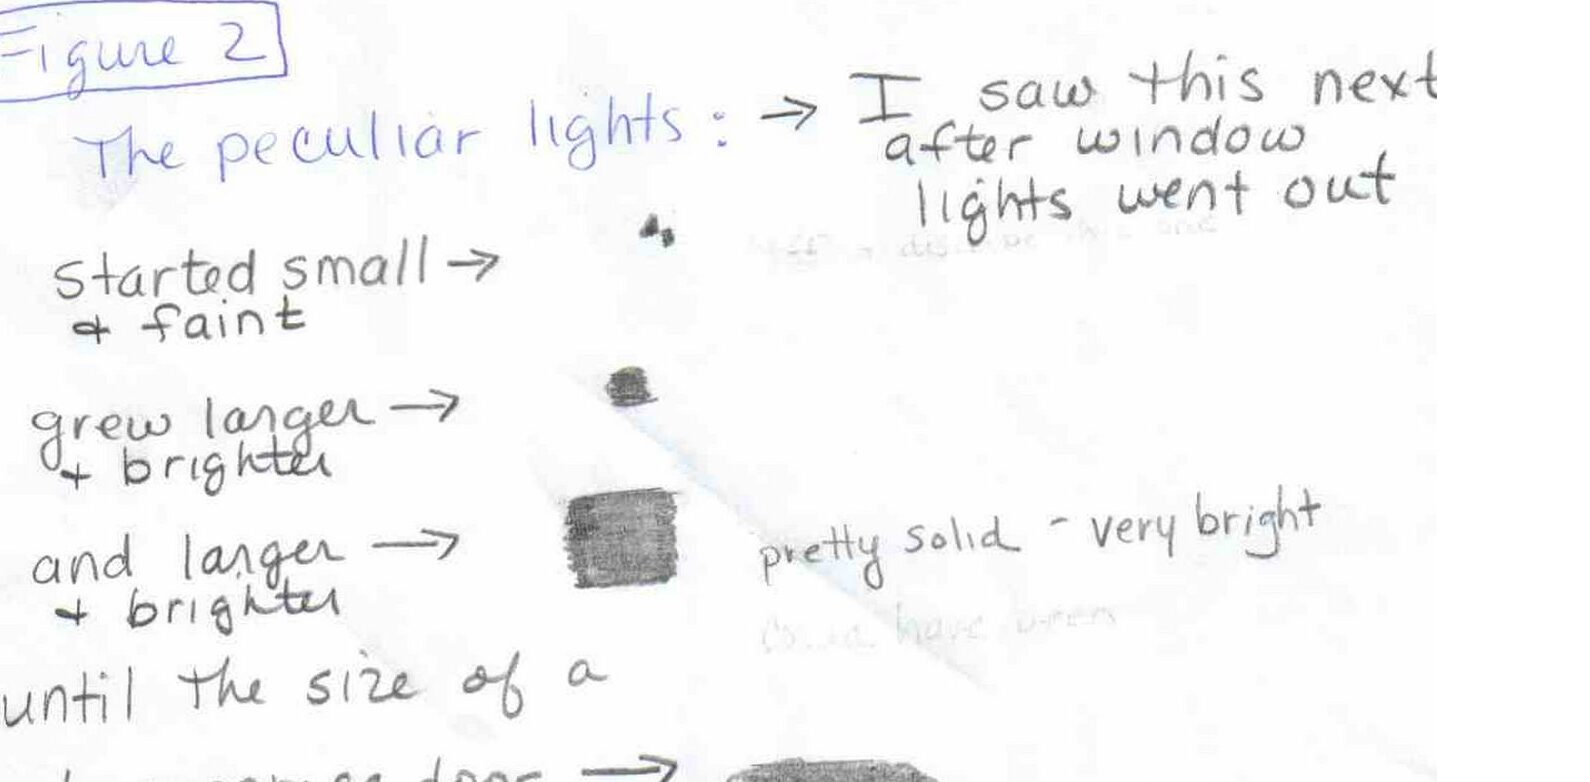 Figure 2
The peculiar lights: → I saw this next
after window
lights went out
started small →
+ faint
grew larger →
+ brighter
and larger →
+ brighter
pretty solid - very bright
have been
until the size of a
door →